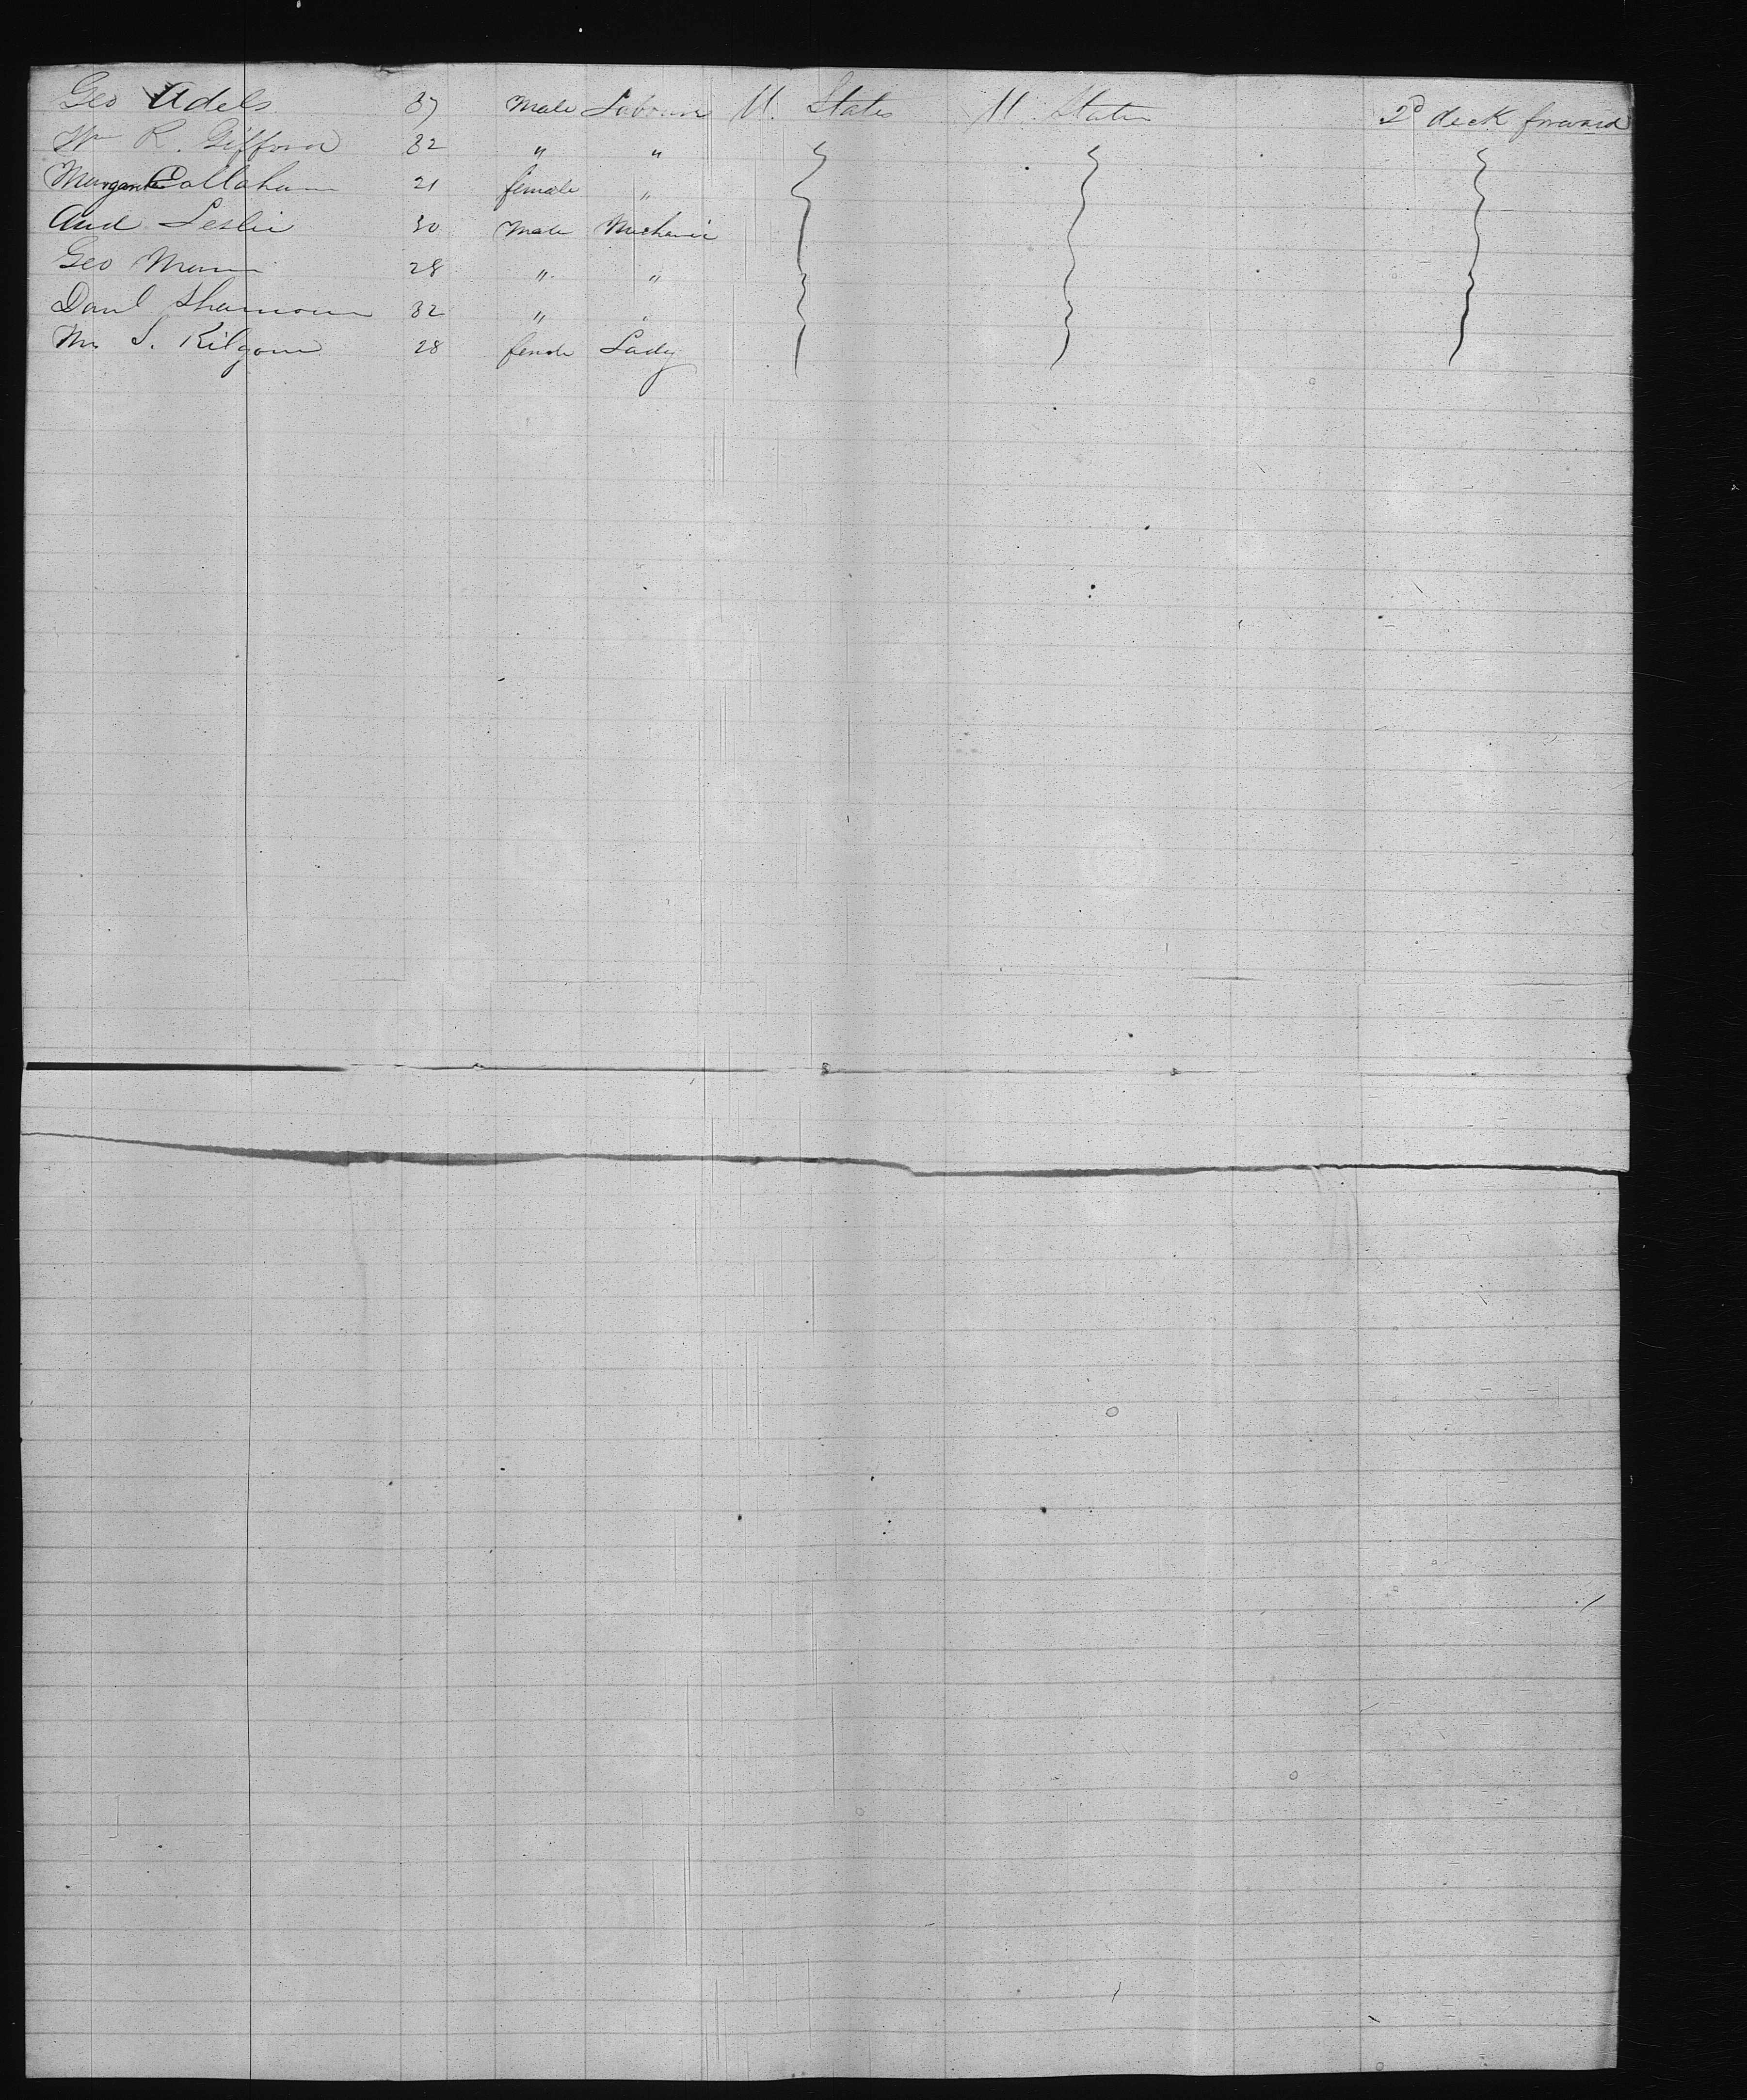 Geo Adels 37 Male Labourer U. States U. States 2d deck forward
Wm R. Gifford 32 " "
Margaret Callahan 21 female "
And Leslie 30 Male Mechanic
Geo Mann 28 " "
Danl Shannon 32 " "
Mrs S. Kilgour 28 female Lady